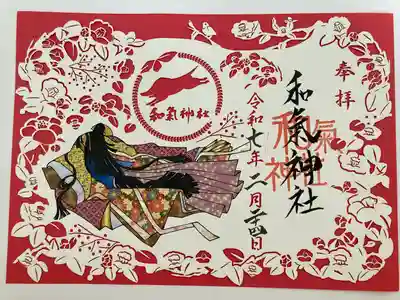 奉拝
和氣神社
和氣神社
令和七年二月二十四日
和氣神社